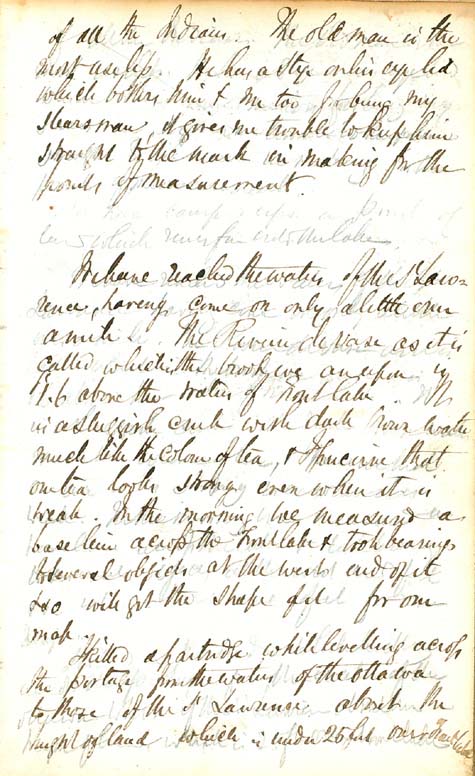 of all the Indians. The old man is the
most useless. He has a stye on his eye lid
which bothers him & me too for being my
stearsman, it gives me trouble to keep him
straight to the mark in making for the
points of measurement.
camp a point of
land which runs far into the lake.
We have reached the waters of the St Law-
rence, having come on only a little over
a mile. The Riviere de Vase as it is
called which is the brook we are upon is
1.6 above the waters of Trout lake. It
is a sluggish creek with dark brown water
much like the colour of tea, & I that
our tea looks strong even when it is
weak. In the morning we measured a
base line across the Trout lake & took bearings
to several objects at the west end of it
& so will get the shape of it for our
map.
Killed a partridge while levelling across
the portage from the waters of the Ottawa
to those of the St Lawrence about the
height of land which is under 25 feet over Trout Lake